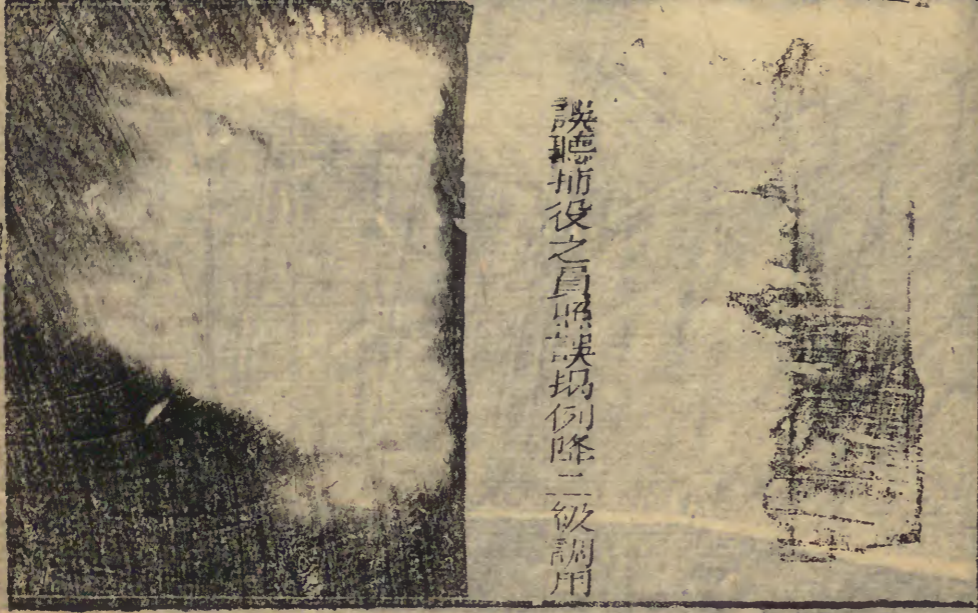 誤聽衙役之員照誤揭例降二級調用